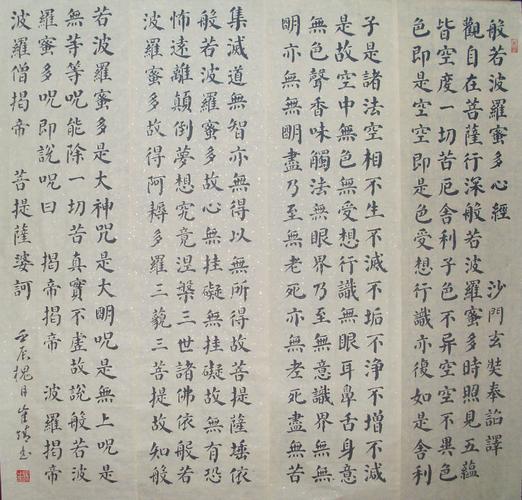 般若波羅蜜多心經 沙門玄奘奉詔譯
觀自在菩薩行深般若波羅蜜多時照見五蘊
皆空度一切苦厄舍利子色不異空空不異色
色即是空空即是色受想行識亦復如是舍利
子是諸法空相不生不滅不垢不淨不增不減
是故空中無色無受想行識無眼耳鼻舌身意
無色聲香味觸法無眼界乃至無意識界無無
明亦無無明盡乃至無老死亦無老死盡無苦
集滅道無智亦無得以無所得故菩提薩埵依
般若波羅蜜多故心無挂礙無挂礙故無有恐
怖遠離顛倒夢想究竟涅槃三世諸佛依般若
波羅蜜多故得阿耨多羅三藐三菩提故知般
若波羅蜜多是大神咒是大明呪是無上呪是
無等等呪能除一切苦真實不虛故說般若波
羅蜜多呪即說呪曰 揭帝揭帝 波羅揭帝
波羅僧揭帝 菩提薩婆訶 壬辰槐月